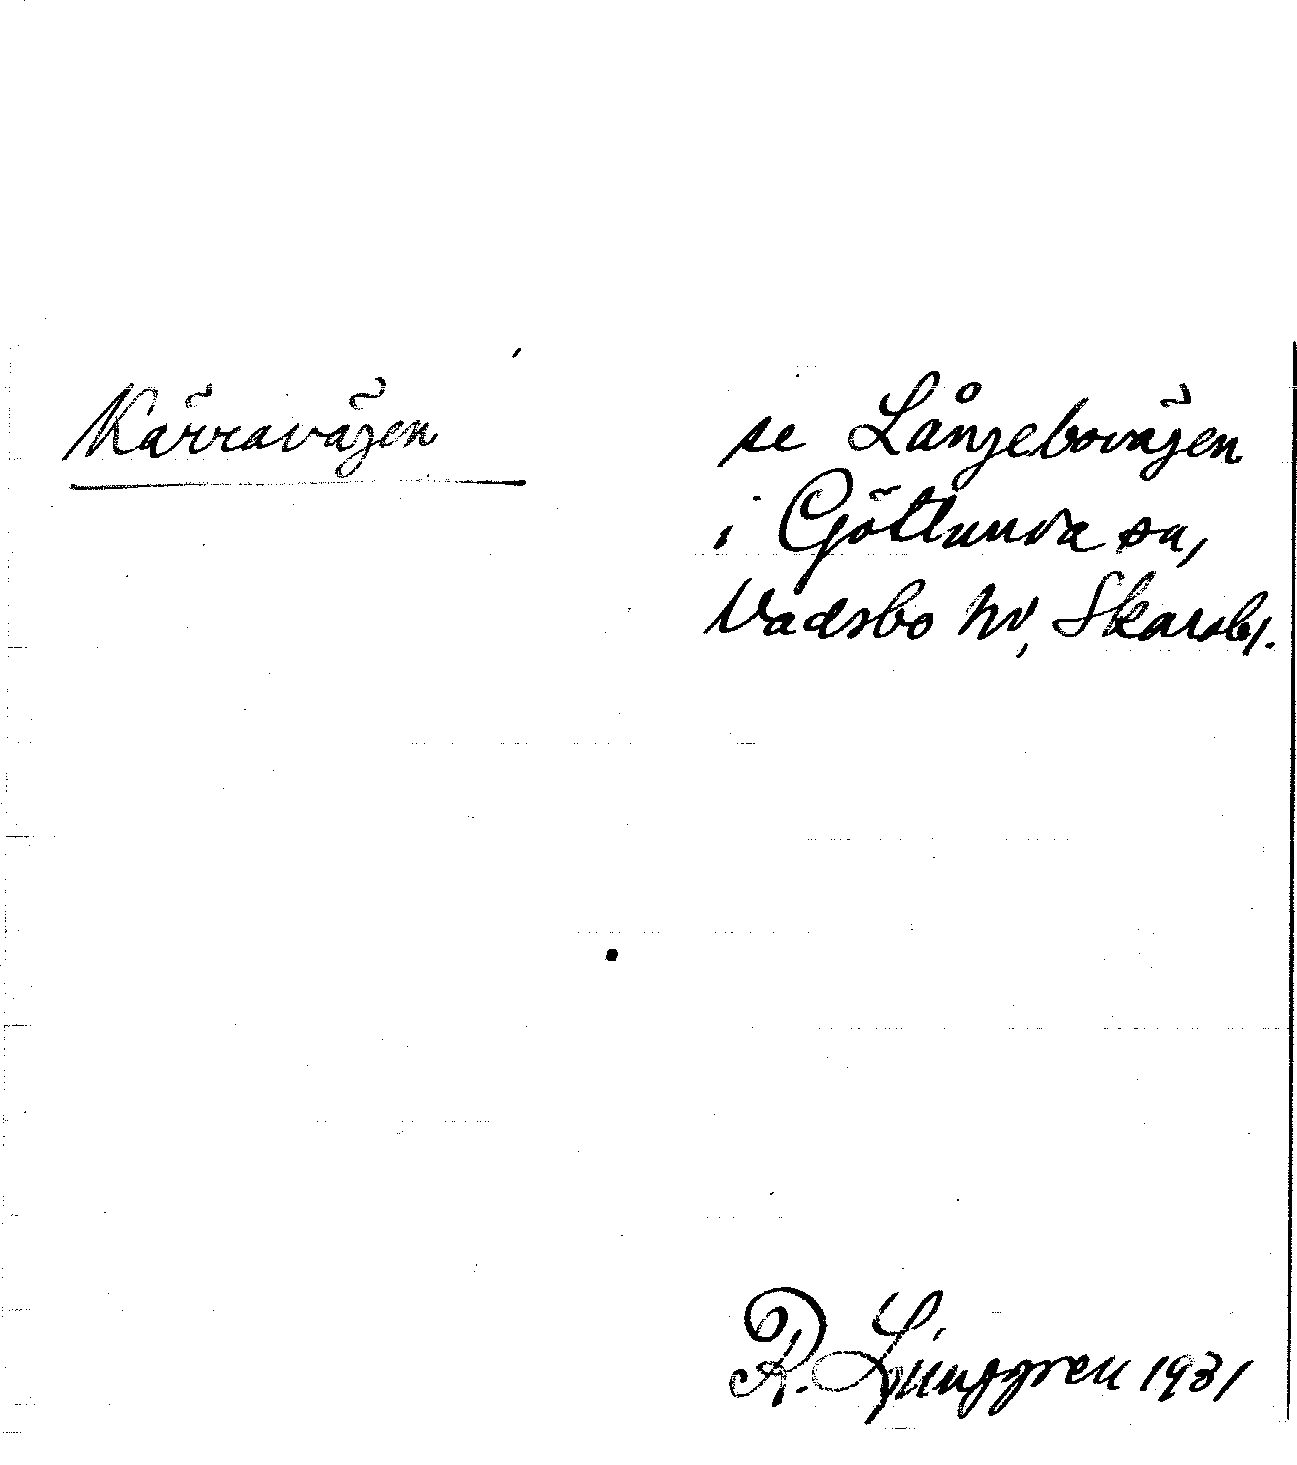 Kärravägen
se Långebovägen
i Götlunda sn,
Vadsbo hd, Skarabg.
R. Ljunggren 1931